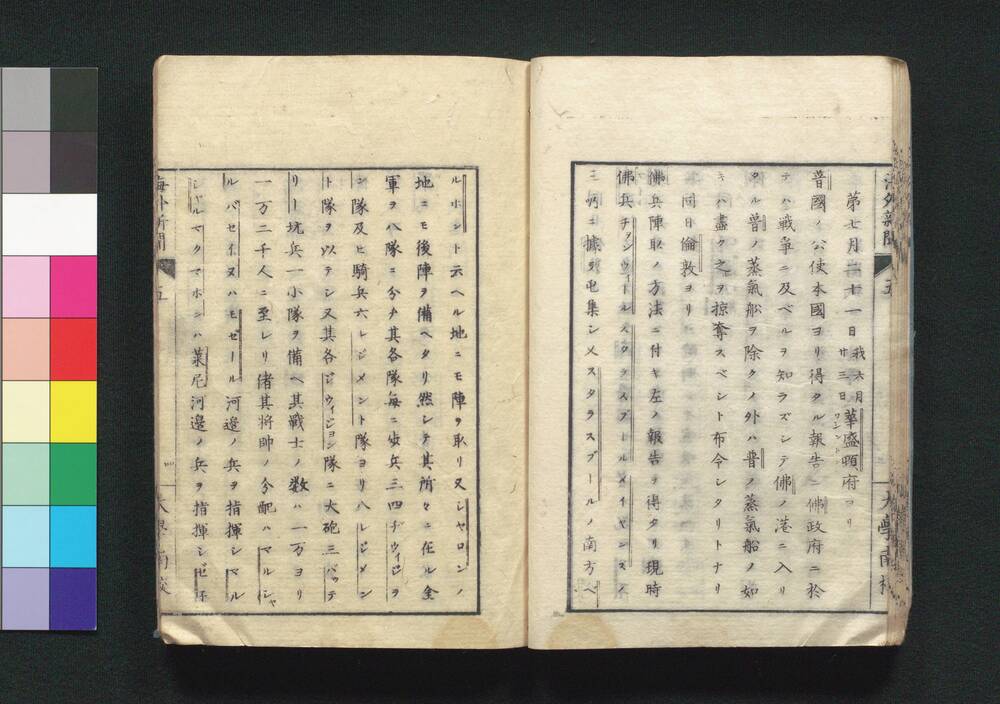 海外新聞
五
大學南校
第七月二十一日
我六月廿三日
華盛頓府ヨリ
ワシントン
普國ノ公使本國ヨリ得タル報告ニ佛政府ニ於
テハ戦争ニ及ベルヲ知ラズシテ佛ノ港ニ入リ
タル普ノ蒸氣船ヲ除クノ外ハ普ノ蒸氣船ノ如
キハ盡ク之ヲ掠奪スベント布令シタリトナリ
同日倫敦ヨリ
佛兵陣取ノ方法ニ付キ左ノ報告ヲ得タリ現時
佛兵
南方ベ
ルホントト云ヘル地ニモ陣ヲ取リ又シャロンノ
地ニモ後陣ヲ備ヘタリ然シテ其所々ニ在ル全
軍ヲ八隊ニ分チ其各隊毎ニ歩兵三四ヂウィジヨ
ン隊及ヒ騎兵六レジメント隊ヨリ八レジメン
ト隊ヲ以テシ又其各ヂウィジョン隊ニ大砲三バッテ
リー坑兵一小隊ヲ備ヘ其戰士ノ数ハ一万ヨリ
一万二千人ニ至レリ偖其将帥ノ分配ハマルシャ
ルバセイヌハモゼール河邊ノ兵ヲ指揮シマル
シャルマクマホンハ莱尼河邊ノ兵ヲ指揮シゼ子
海外新聞
五
大學南校